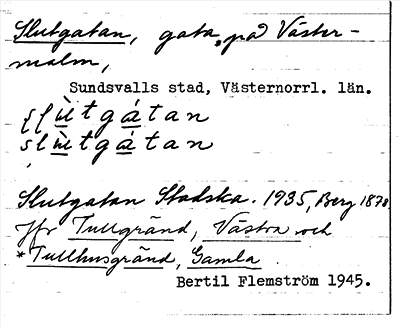 Slutgatan, gata på Väster-
malm,
Sundsvalls stad, Västernorrl. län.
slùtgátan
slùtgátan
Slutgatan Stadska. 1935, Berg 1878
Jfr Tullgränd, Västra och
*Tullhusgränd, Gamla
Bertil Flemström 1945.